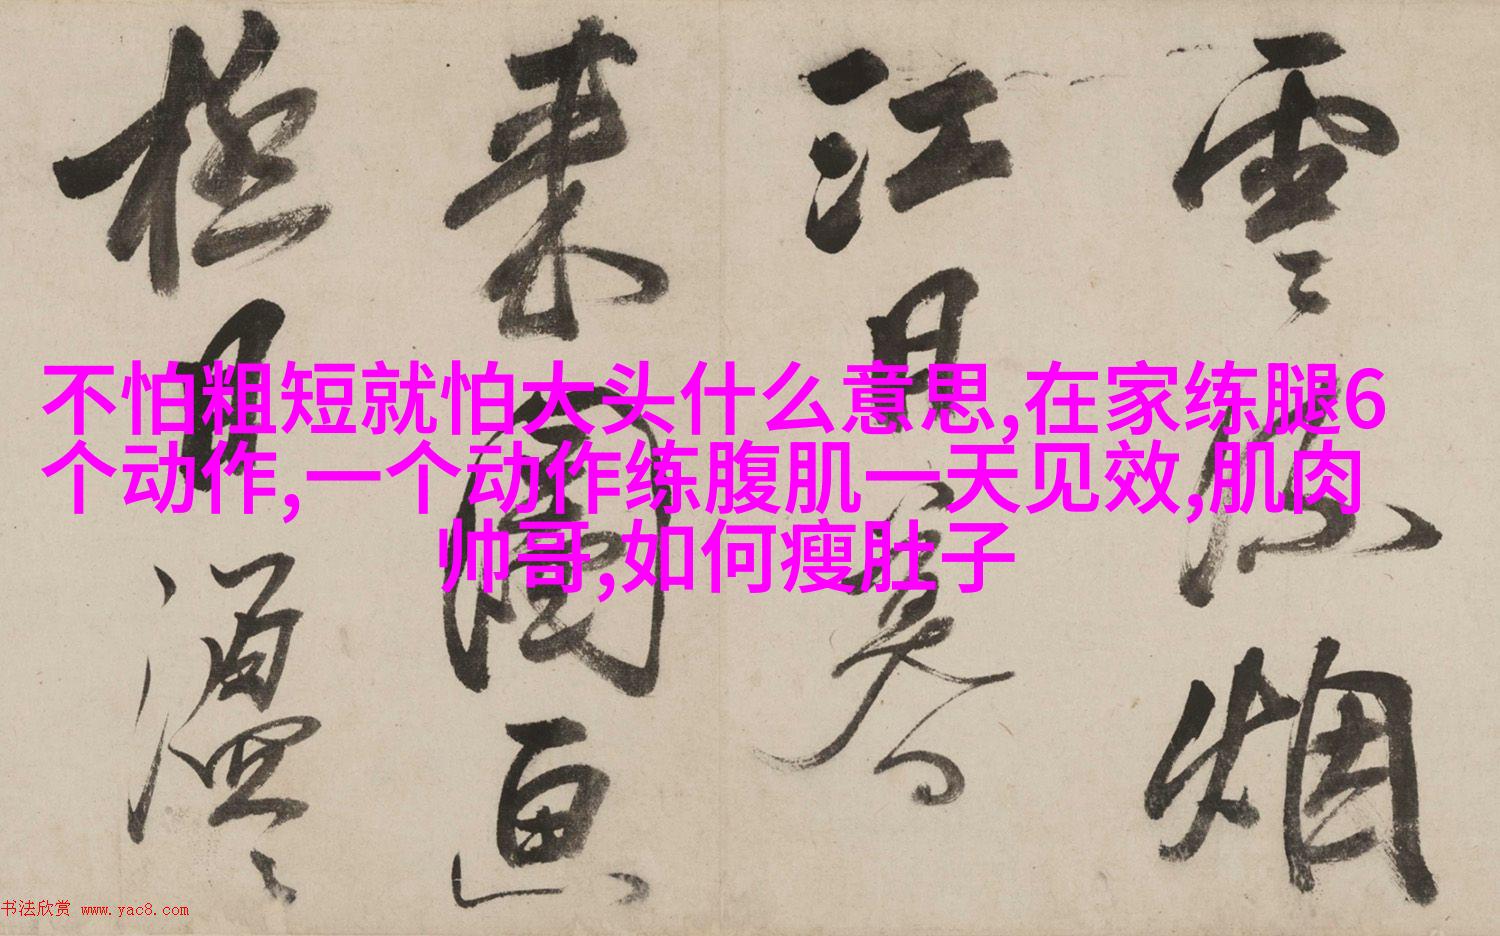 雲
烟
江
来
画
极目
不怕粗短就怕大头什么意思,在家练腿6
个动作,一个动作练腹肌一天见效,肌肉
帅哥,如何瘦肚子
书法欣赏 www.yac8.com